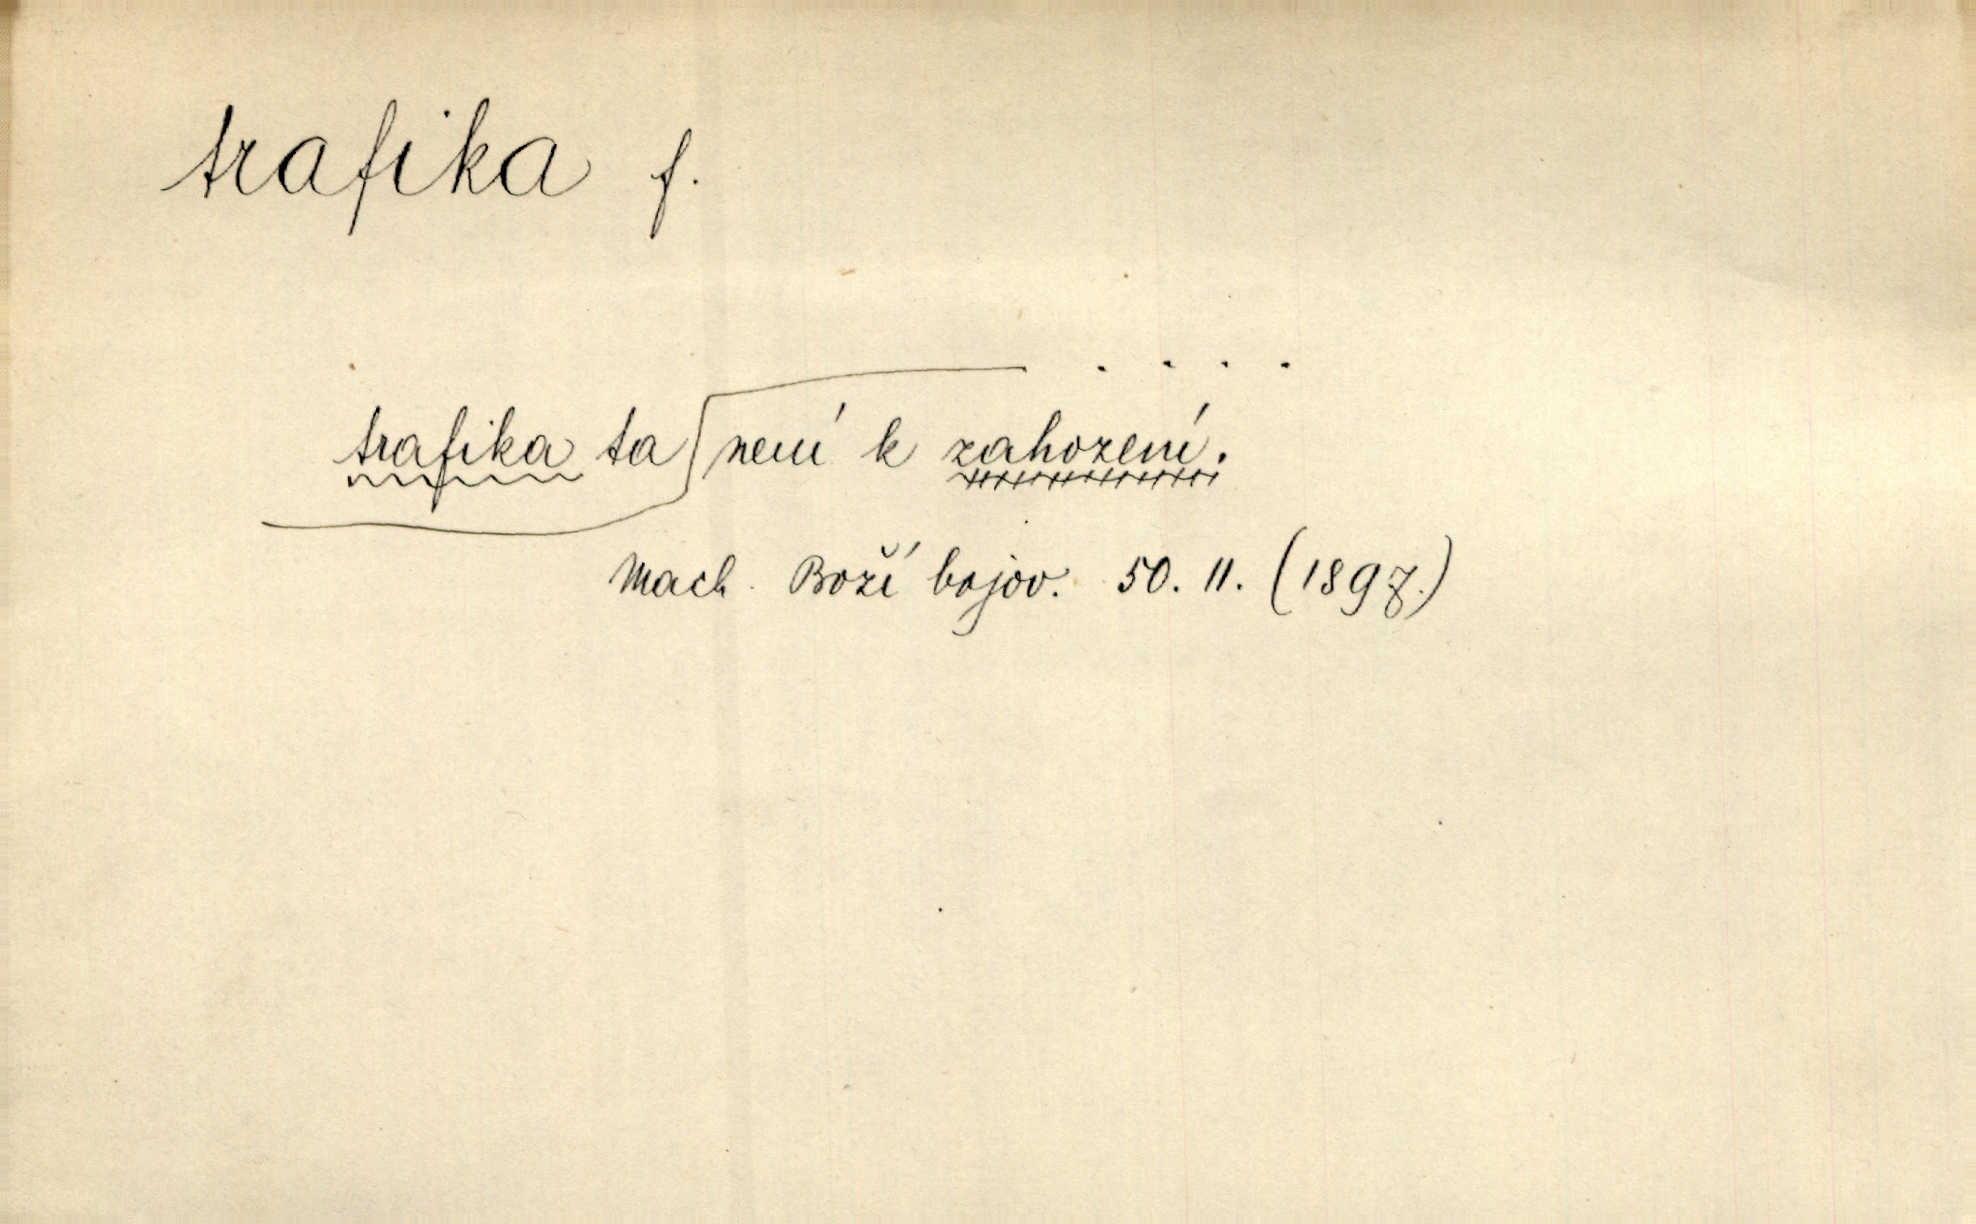 trafika f.
. . . .
trafika ta není k zahození.
Mach. Boží bojov. 50. II. (1897.)